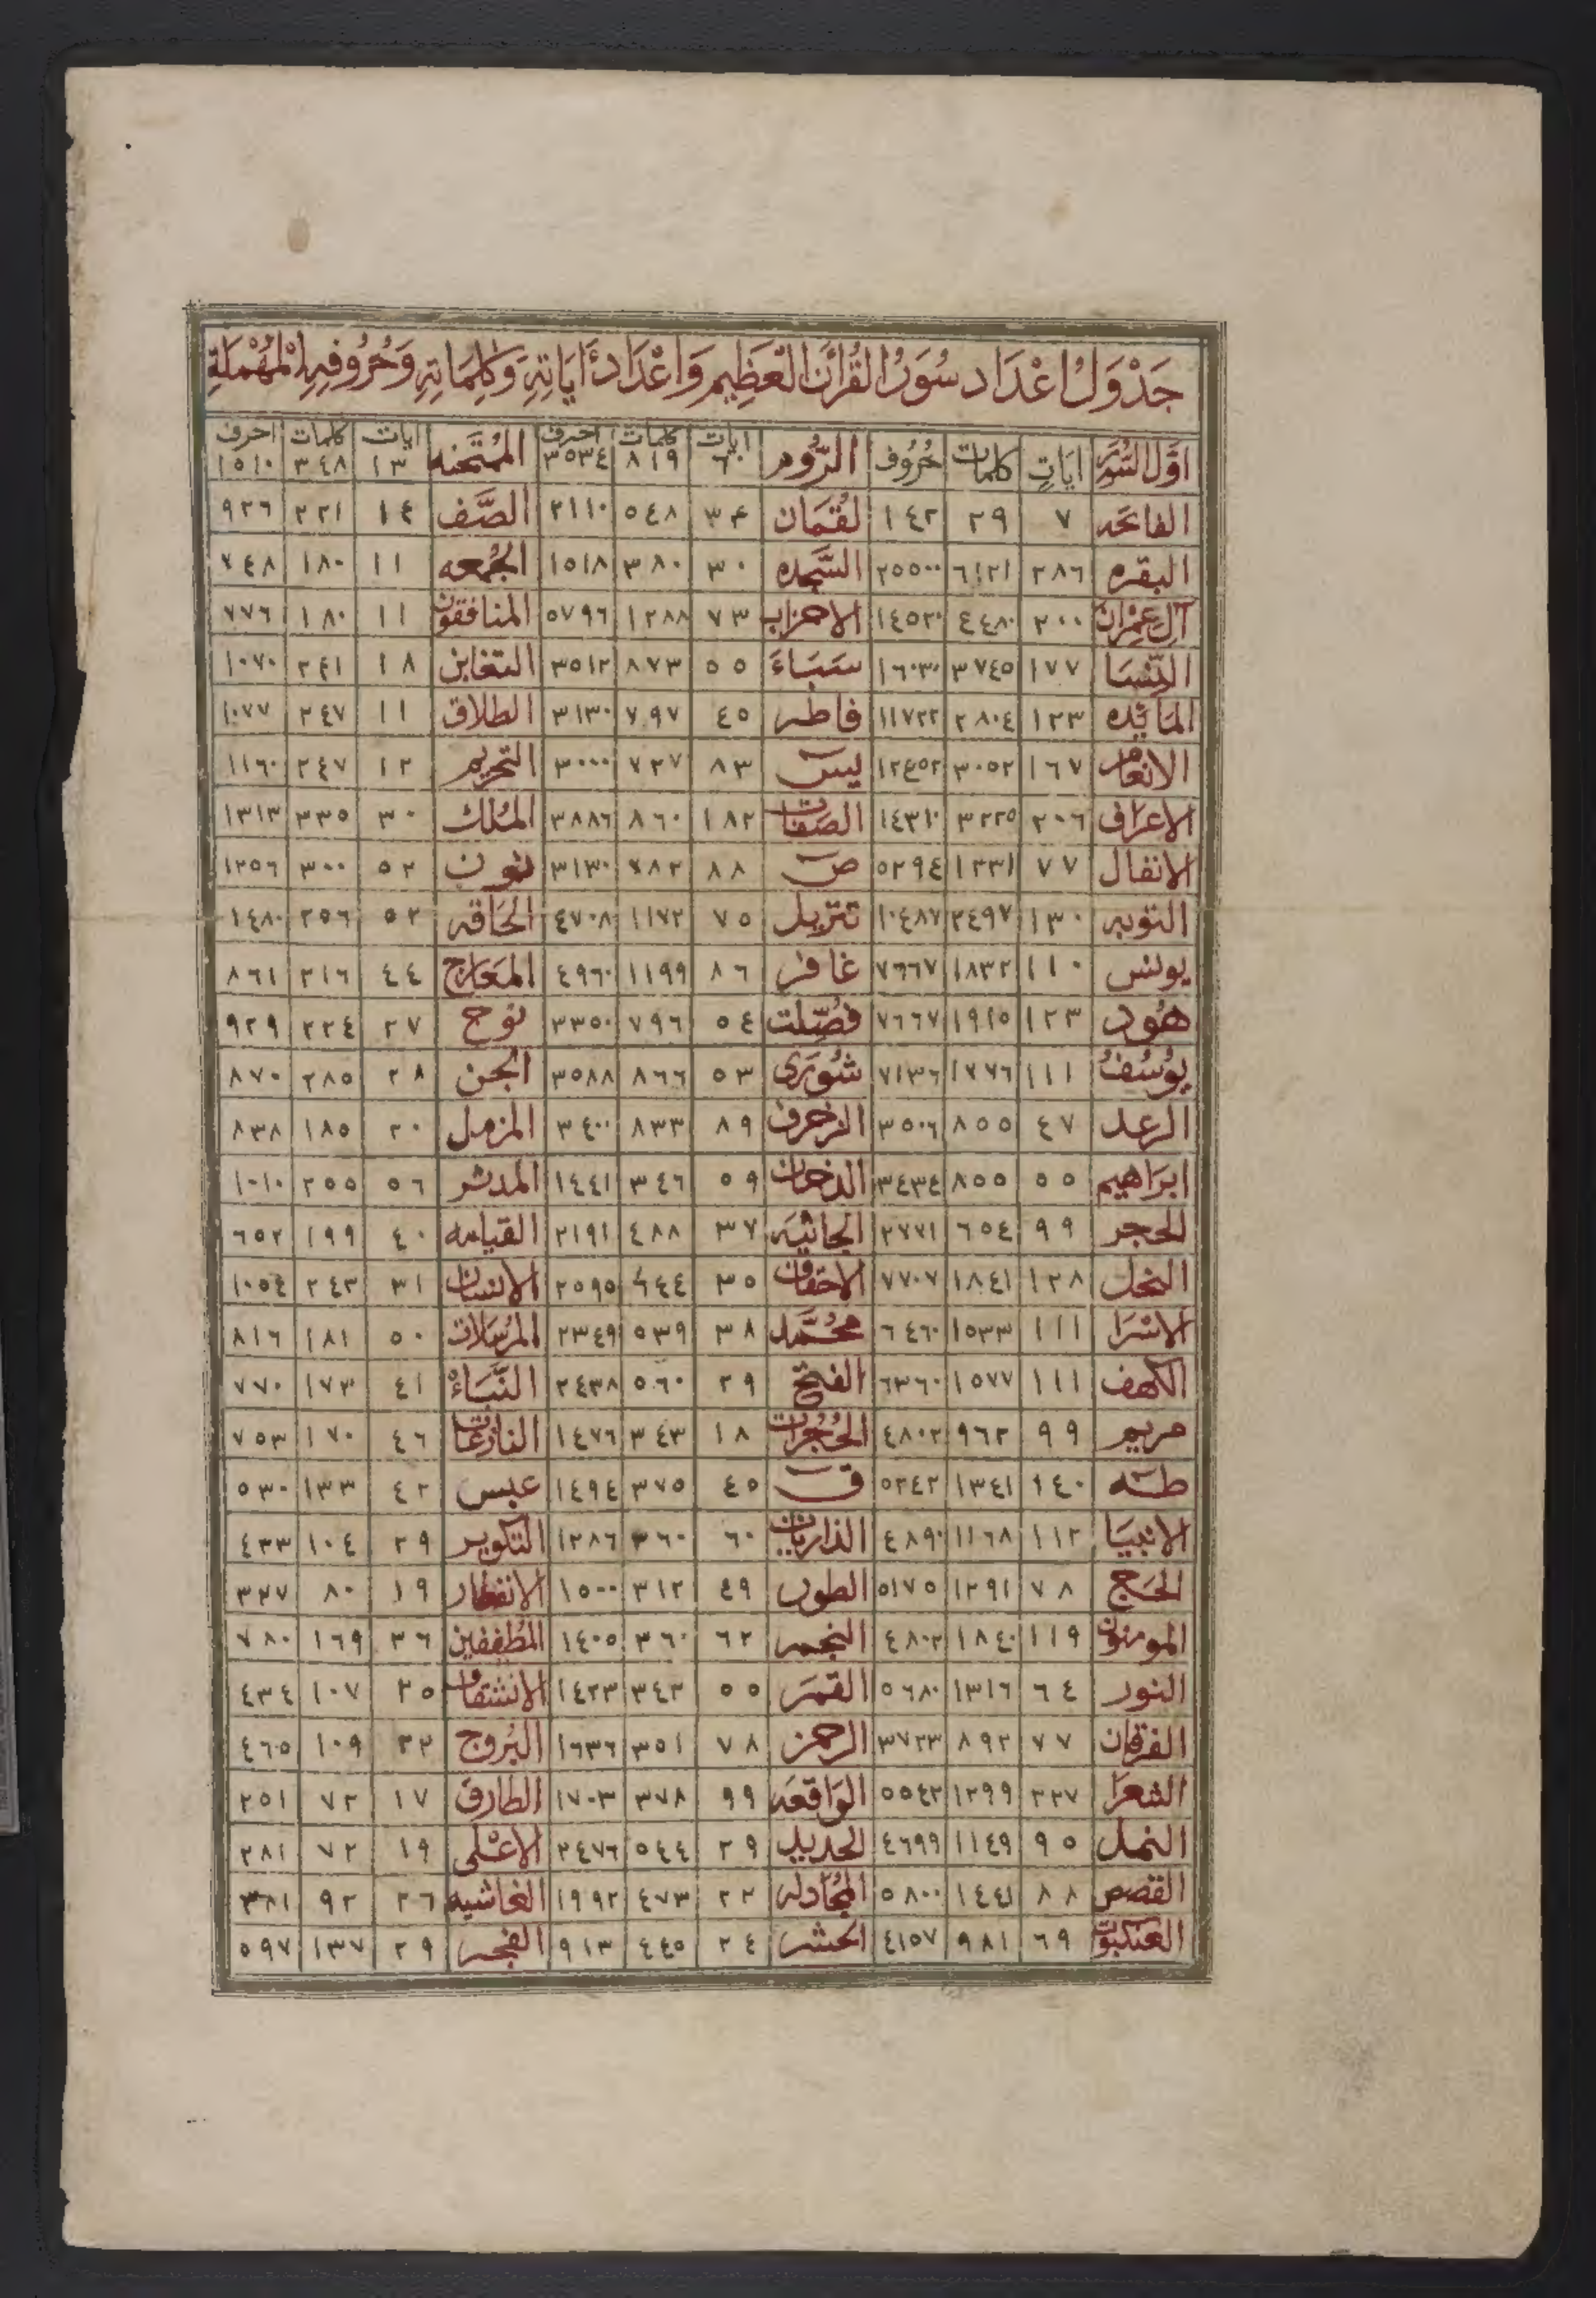 جَدْوَلُ اعْدَاد سُوَرِ القُرْآنِ الْعَظِيمِ وَاعْدَاد أَيَاتِهِ وَكَلِمَاتِهِ وَحُرُوفِهِ الْمُهْمَلَةِ
اوّل السُّوَر ايَاتٍ كلمات حُرُوف الرُّوم ايات ٦٠ كلمات ٨١٩ احرف ٣٥٣٤ الممتحنه ايات ١٣ كلمات ٣٤٨ احرف ١٥١٠
الفاتحه ٧ ٢٩ ١٤٢ لقُمَان ٣٤ ٥٤٨ ٢١١٠ الصَّف ١٤ ٢٢١ ٩٢٦
البقره ٢٨٦ ٦١٢١ ٢٥٥٠٠ السَّجده ٣٠ ٣٨٠ ١٥١٨ الجُمعه ١١ ١٨٠ ٧٤٨
آل عِمْرَان ٢٠٠ ٤٤٨٠ ١٤٥٢٠ الاحزاب ٧٣ ١٢٨٨ ٥٧٩٦ المنافقون ١١ ١٨٠ ٧٧٦
النّسَا ١٧٧ ٣٧٤٥ ١٦٠٣٠ سَبَاءَ ٥٥ ٨٧٣ ٣٥١٢ التغابن ١٨ ٢٤١ ١٠٧٠
المَائِده ١٢٣ ٢٨٠٤ ١١٧٢٢ فاطر ٤٥ ٧٩٧ ٣١٣٠ الطلاق ١١ ٢٤٧ ١٠٧٧
الانعام ١٦٧ ٣٠٥٢ ١٢٤٥٢ يس ٨٣ ٧٢٧ ٣٠٠٠ التحريم ١٢ ٢٤٧ ١١٦٠
الاعرَاف ٢٠٦ ٣٢٢٥ ١٤٣١٠ الصَفات ١٨٢ ٨٦٠ ٣٨٨٦ المُلك ٣٠ ٣٣٥ ١٣١٣
الانفال ٧٧ ١٢٣١ ٥٢٩٤ ص ٨٨ ٧٨٢ ٣١٣٠ نون ٥٢ ٣٠٠ ١٢٥٦
التوبه ١٣٠ ٢٤٩٧ ١٠٤٨٧ تنزيل ٧٥ ١١٧٢ ٤٧٠٨ الحَاقه ٥٢ ٢٥٦ ١٤٨٠
يونس ١١٠ ١٨٣٢ ٧٦٦٧ غافر ٨٦ ١١٩٩ ٤٩٦٠ المعَارج ٤٤ ٢١٦ ٨٦١
هُود ١٢٣ ١٩١٥ ٧٦٦٧ فصّلت ٥٤ ٧٩٦ ٣٣٥٠ نوح ٢٧ ٢٢٤ ٩٢٩
يُوسُفُ ١١١ ١٧٧٦ ٧١٣٦ شُورَى ٥٣ ٨٦٦ ٣٥٨٨ الجن ٢٨ ٢٨٥ ٨٧٠
الرعد ٤٧ ٨٥٥ ٣٥٠٦ الزخرف ٨٩ ٨٣٣ ٣٤٠٠ المزمل ٢٠ ١٨٥ ٨٣٨
ابرَاهيم ٥٥ ٨٥٥ ٣٤٣٤ الدخان ٥٩ ٣٤٦ ١٤٤١ المدثر ٥٦ ٢٥٥ ١٠١٠
الحجر ٩٩ ٦٥٤ ٢٧٧١ الجاثيَه ٣٧ ٤٨٨ ٢١٩١ القيامه ٤٠ ١٩٩ ٦٥٢
النحل ١٢٨ ١٨٤١ ٧٧٠٧ الاحقاف ٣٥ ٦٤٤ ٢٥٩٥ الانسان ٣١ ٢٤٣ ١٠٥٤
الاسْرَا ١١١ ١٥٣٣ ٦٤٦٠ محُمَّد ٣٨ ٥٣٩ ٢٣٤٩ المُرسَلات ٥٠ ١٨١ ٨١٦
الكهف ١١١ ١٥٧٧ ٦٣٦٠ الفتح ٢٩ ٥٦٠ ٢٤٣٨ النَّبَاءْ ٤١ ١٧٣ ٧٧٠
مريم ٩٩ ٩٦٢ ٤٨٠٢ الحُجُرات ١٨ ٣٤٣ ١٤٧٦ النازعات ٤٦ ١٧٠ ٧٥٣
طه ١٤٠ ١٣٤١ ٥٢٤٢ ق ٤٥ ٣٧٥ ١٤٩٤ عبس ٤٢ ١٣٣ ٥٣٠
الانبيَا ١١٢ ١١٦٨ ٤٨٩٠ الذاريات ٦٠ ٣٦٠ ١٢٨٦ التكوير ٢٩ ١٠٤ ٤٣٣
الحَج ٧٨ ١٢٩١ ٥١٧٥ الطور ٤٩ ٣١٢ ١٥٠٠ الانفطار ١٩ ٨٠ ٣٢٧
المومنون ١١٩ ١٨٤٠ ٤٨٠٢ النجم ٦٢ ٣٦٠ ١٤٠٥ المُطففين ٣٦ ١٦٩ ٧٨٠
النور ٦٤ ١٣١٦ ٥٦٨٠ القمَر ٥٥ ٣٤٢ ١٤٢٣ الانشقاق ٢٥ ١٠٧ ٤٣٤
الفرقان ٧٧ ٨٩٢ ٣٧٢٣ الرحمن ٧٨ ٣٥١ ١٦٣٦ البُروج ٢٢ ١٠٩ ٤٦٥
الشعرَا ٢٢٧ ١٢٩٩ ٥٥٤٢ الوَاقعَه ٩٩ ٣٧٨ ١٧٠٣ الطارق ١٧ ٧٢ ٢٥١
النمل ٩٥ ١١٤٩ ٤٦٩٩ الحديد ٢٩ ٥٤٤ ٢٤٧٦ الاعْلى ١٩ ٧٢ ٢٨١
القصص ٨٨ ١٤٤١ ٥٨٠٠ المُجَادله ٢٢ ٤٧٣ ١٩٩٢ الغاشيه ٢٦ ٩٢ ٣٨١
العنكبوت ٦٩ ٩٨١ ٤١٥٧ الحشر ٢٤ ٤٤٥ ٩١٣ الفجر ٢٩ ١٣٧ ٥٩٧